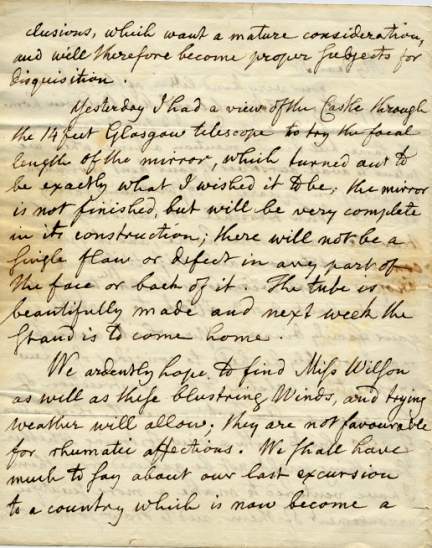 clusions, which want a mature consideration,
and will therefore become proper subjects for
disquisition.
Yesterday I had a view of the Castle through
the 14 feet Glasgow telescope to try the focal
length of the mirror, which turned out to
be exactly what I wished it to be; the mirror
is not finished, but will be very complete
in its construction; there will not be a
single flaw or defect in any part of
the face or back of it. The tube is
beautifully made and next week the
stand is to come home.
We ardently hope to find Miss Wilson
as well as these blustring Winds, and trying
weather will allow; they are not favourable
for rhumatic affections. We shall have
much to say about our last excursion
to a country which is now become a